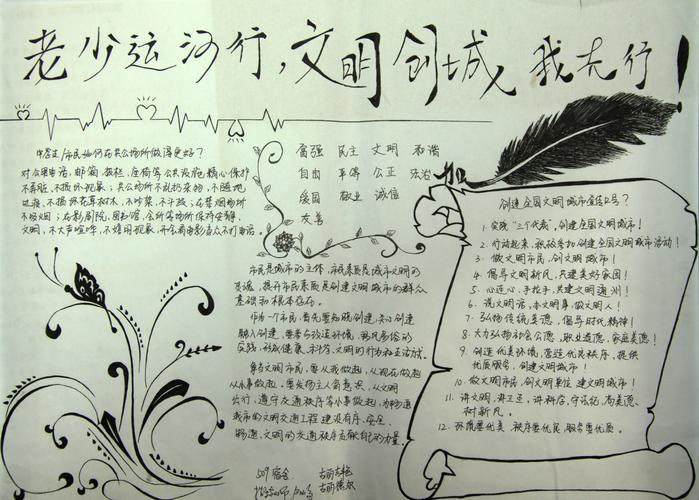 老少运河行，文明创城，我先行！
中学生/市民如何在公共场所做得更好？
对公用电话、邮箱、报栏、座椅等公共设施精心保护
不弄脏，不损坏现象；公共场所不乱扔杂物，不随地
吐痰，不损坏花草树木，不吵架，不斗殴；在禁烟场所
不吸烟；在影剧院、图书馆、会所等场所保持安静、
文明，不大声喧哗，不
富强 民主 文明 和谐
自由 平等 公正 法治
爱国 敬业 诚信
友善
市民是城市的主体，市民素质是城市文明的
灵魂，提升市民素质是创建文明城市的群众
基础和根本所在。
作为一个市民，首先要知晓创建，关心创建
融入创建，要参与改造环境、移风易俗的
实践，形成健康、科学、文明的行为和生活方式。
争当文明市民，要从我做起，从现在做起
从小事做起，要发扬主人翁意识，从文明
出行，遵守交通秩序等小事做起，为畅通
我市的文明交通工程 建设有序、安全、
畅通、文明的交通秩序贡献自己的力量。
509宿舍
创建全国文明城市宣传口号？
1. 实践“三个代表”，创建全国文明城市！
2. 行动起来，积极参加创建全国文明城市活动！
3. 做文明市民，创文明城市！
4. 倡导文明新风，共建美好家园！
5. 心连心，手拉手，共建文明通州！
6. 说文明话，办文明事，做文明人！
7. 弘扬传统美德，倡导时代精神！
8. 大力弘扬社会公德、职业道德、家庭美德！
9. 创造优美环境，营造优良秩序，提供
优质服务，创建文明城市！
10. 做文明市民，创文明单位 建文明城市！
11. 讲文明，讲卫生，讲科学，守法纪，尚美德，
树新风。
12. 环境要优美 秩序要优良，服务要优质。